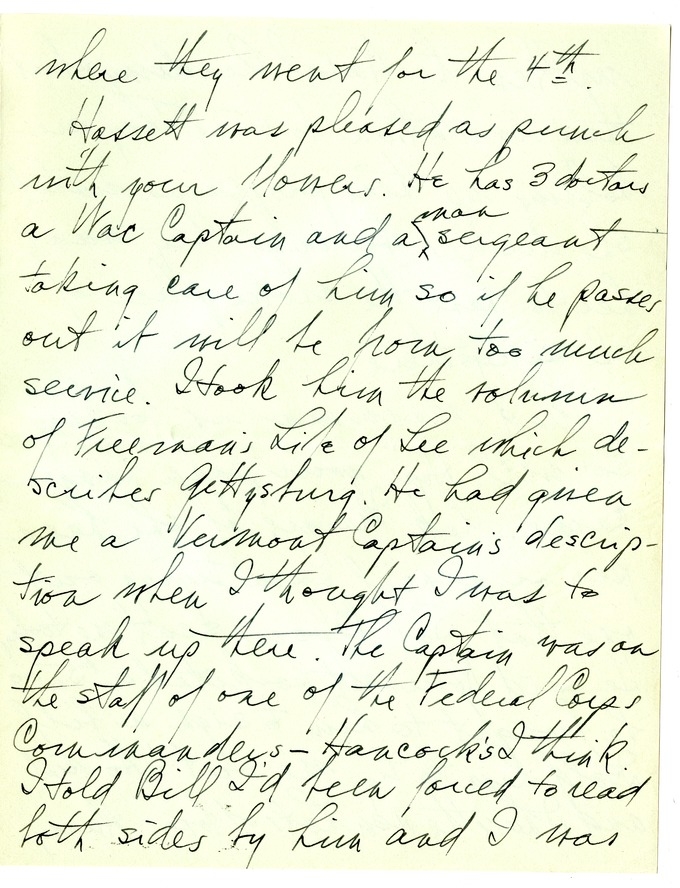 where they went for the 4th.
Hassett was pleased as punch
with your flowers. He has 3 doctors
a Wac Captain and a man sergeant
taking care of him so if he passes
out it will be from too much
service. I took him the volumn
of Freeman's Life of Lee which de-
scribes Gettysburg. He had given
me a Vermont Captain's descrip-
tion when I thought I was to
speak up there. The Captain was on
the staff of one of the Federal Corps
Commanders - Hancock's I think.
I told Bill I'd been forced to read
both sides by him and I was